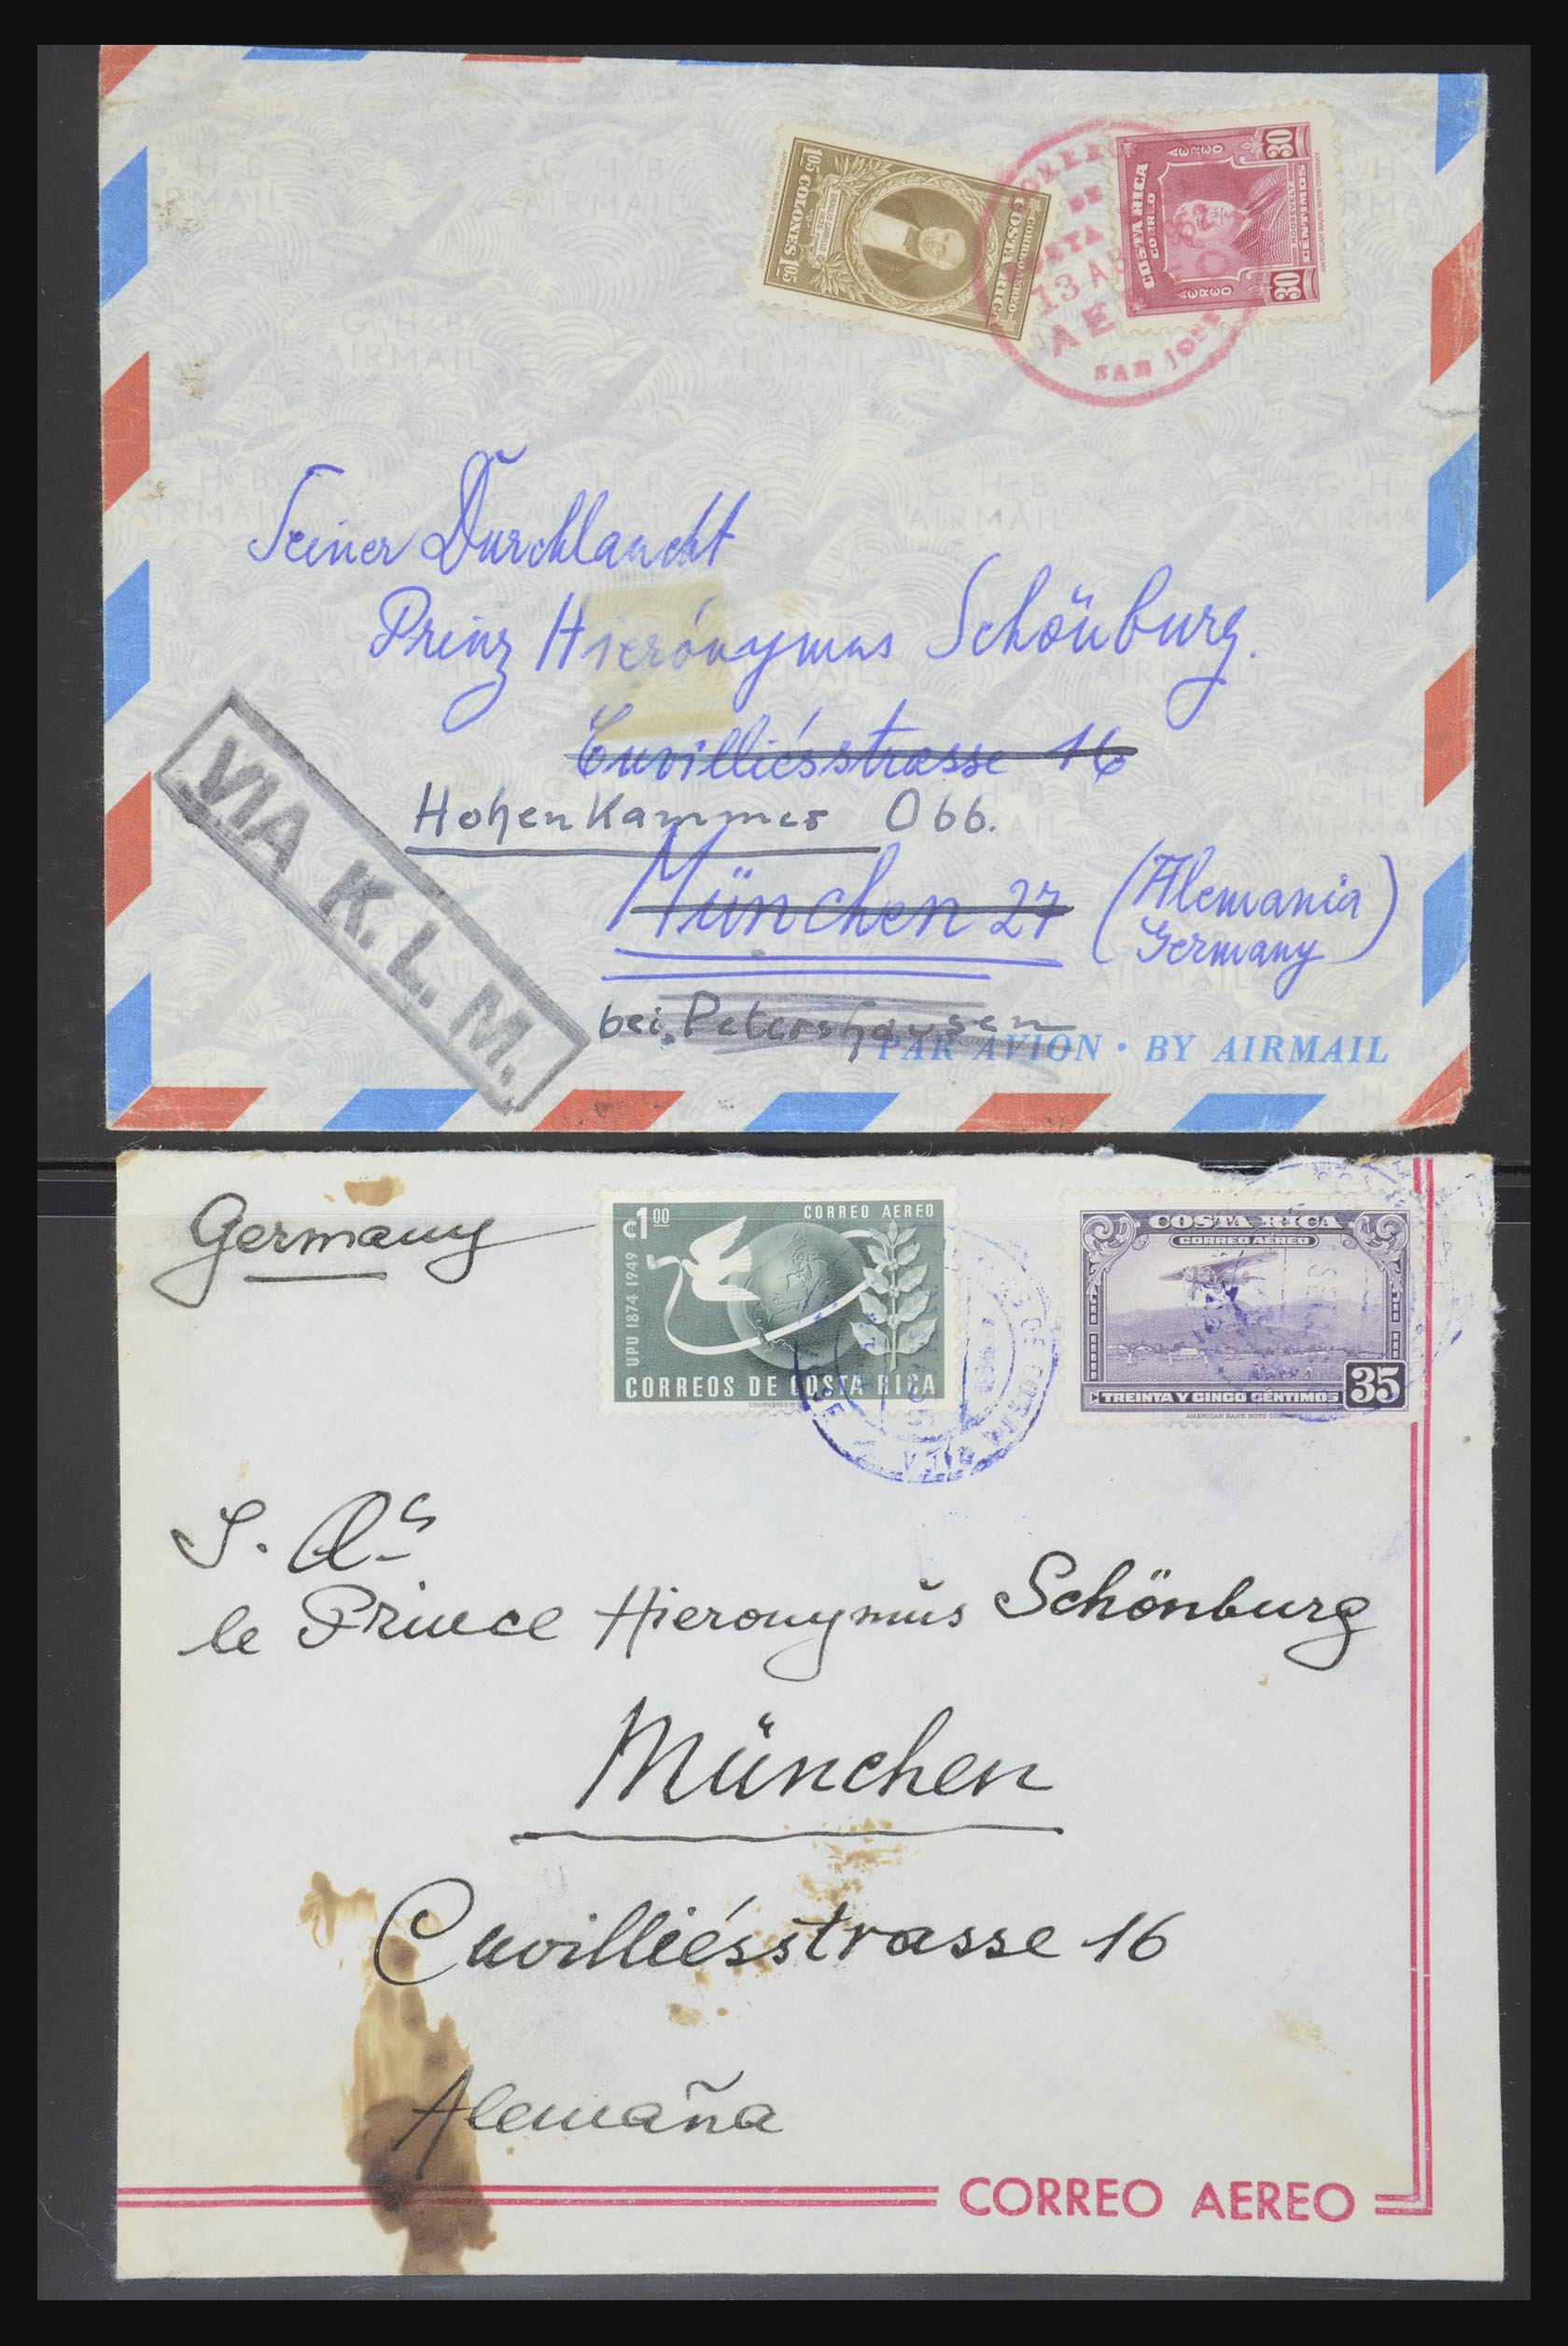 CORREO AEREO
COSTA RICA
1.05 COLONES 1.05
COSTA RICA
CORREO
AEREO
AEREO
30 CENTIMOS 30
ROOSEVELT
AMERICAN BANK NOTE COMPANY
DE
13 AB
AE
SAN JOSE
G H B
AIRMAIL
Seiner Durchlaucht
Prinz Hierónymus Schönburg.
Cuvilliésstrasse 16
Hohenkammer Obb.
München 27 (Alemania
Germany)
bei Petershausen
VIA K. L. M.
PAR AVION • BY AIRMAIL
Germany
₡1 00 CORREO AEREO
UPU 1874 1949
CORREOS DE COSTA RICA
COSTA RICA
CORREO AEREO
TREINTA Y CINCO CÉNTIMOS 35
AMERICAN BANK NOTE COMPANY
S. A. S
le Prince Hieronymus Schönburg
München
Cuvilliésstrasse 16
Alemaña
CORREO AEREO